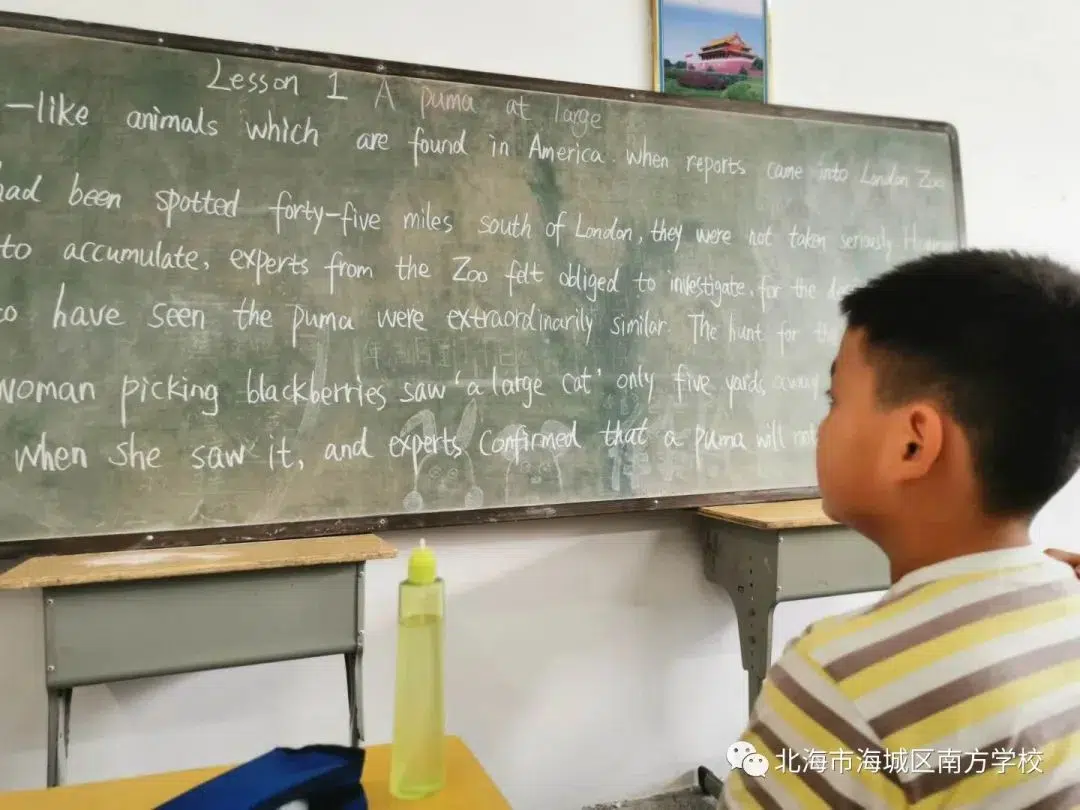 Lesson 1 A puma at large
-like animals which are found in America. When reports came into London Zoo
had been spotted forty-five miles south of London, they were not taken seriously.
to accumulate, experts from the Zoo felt obliged to investigate, for the
have seen the puma were extraordinarily similar. The hunt for the
woman picking blackberries saw 'a large cat' only five yards away
when she saw it, and experts confirmed that a puma will not
北海市海城区南方学校